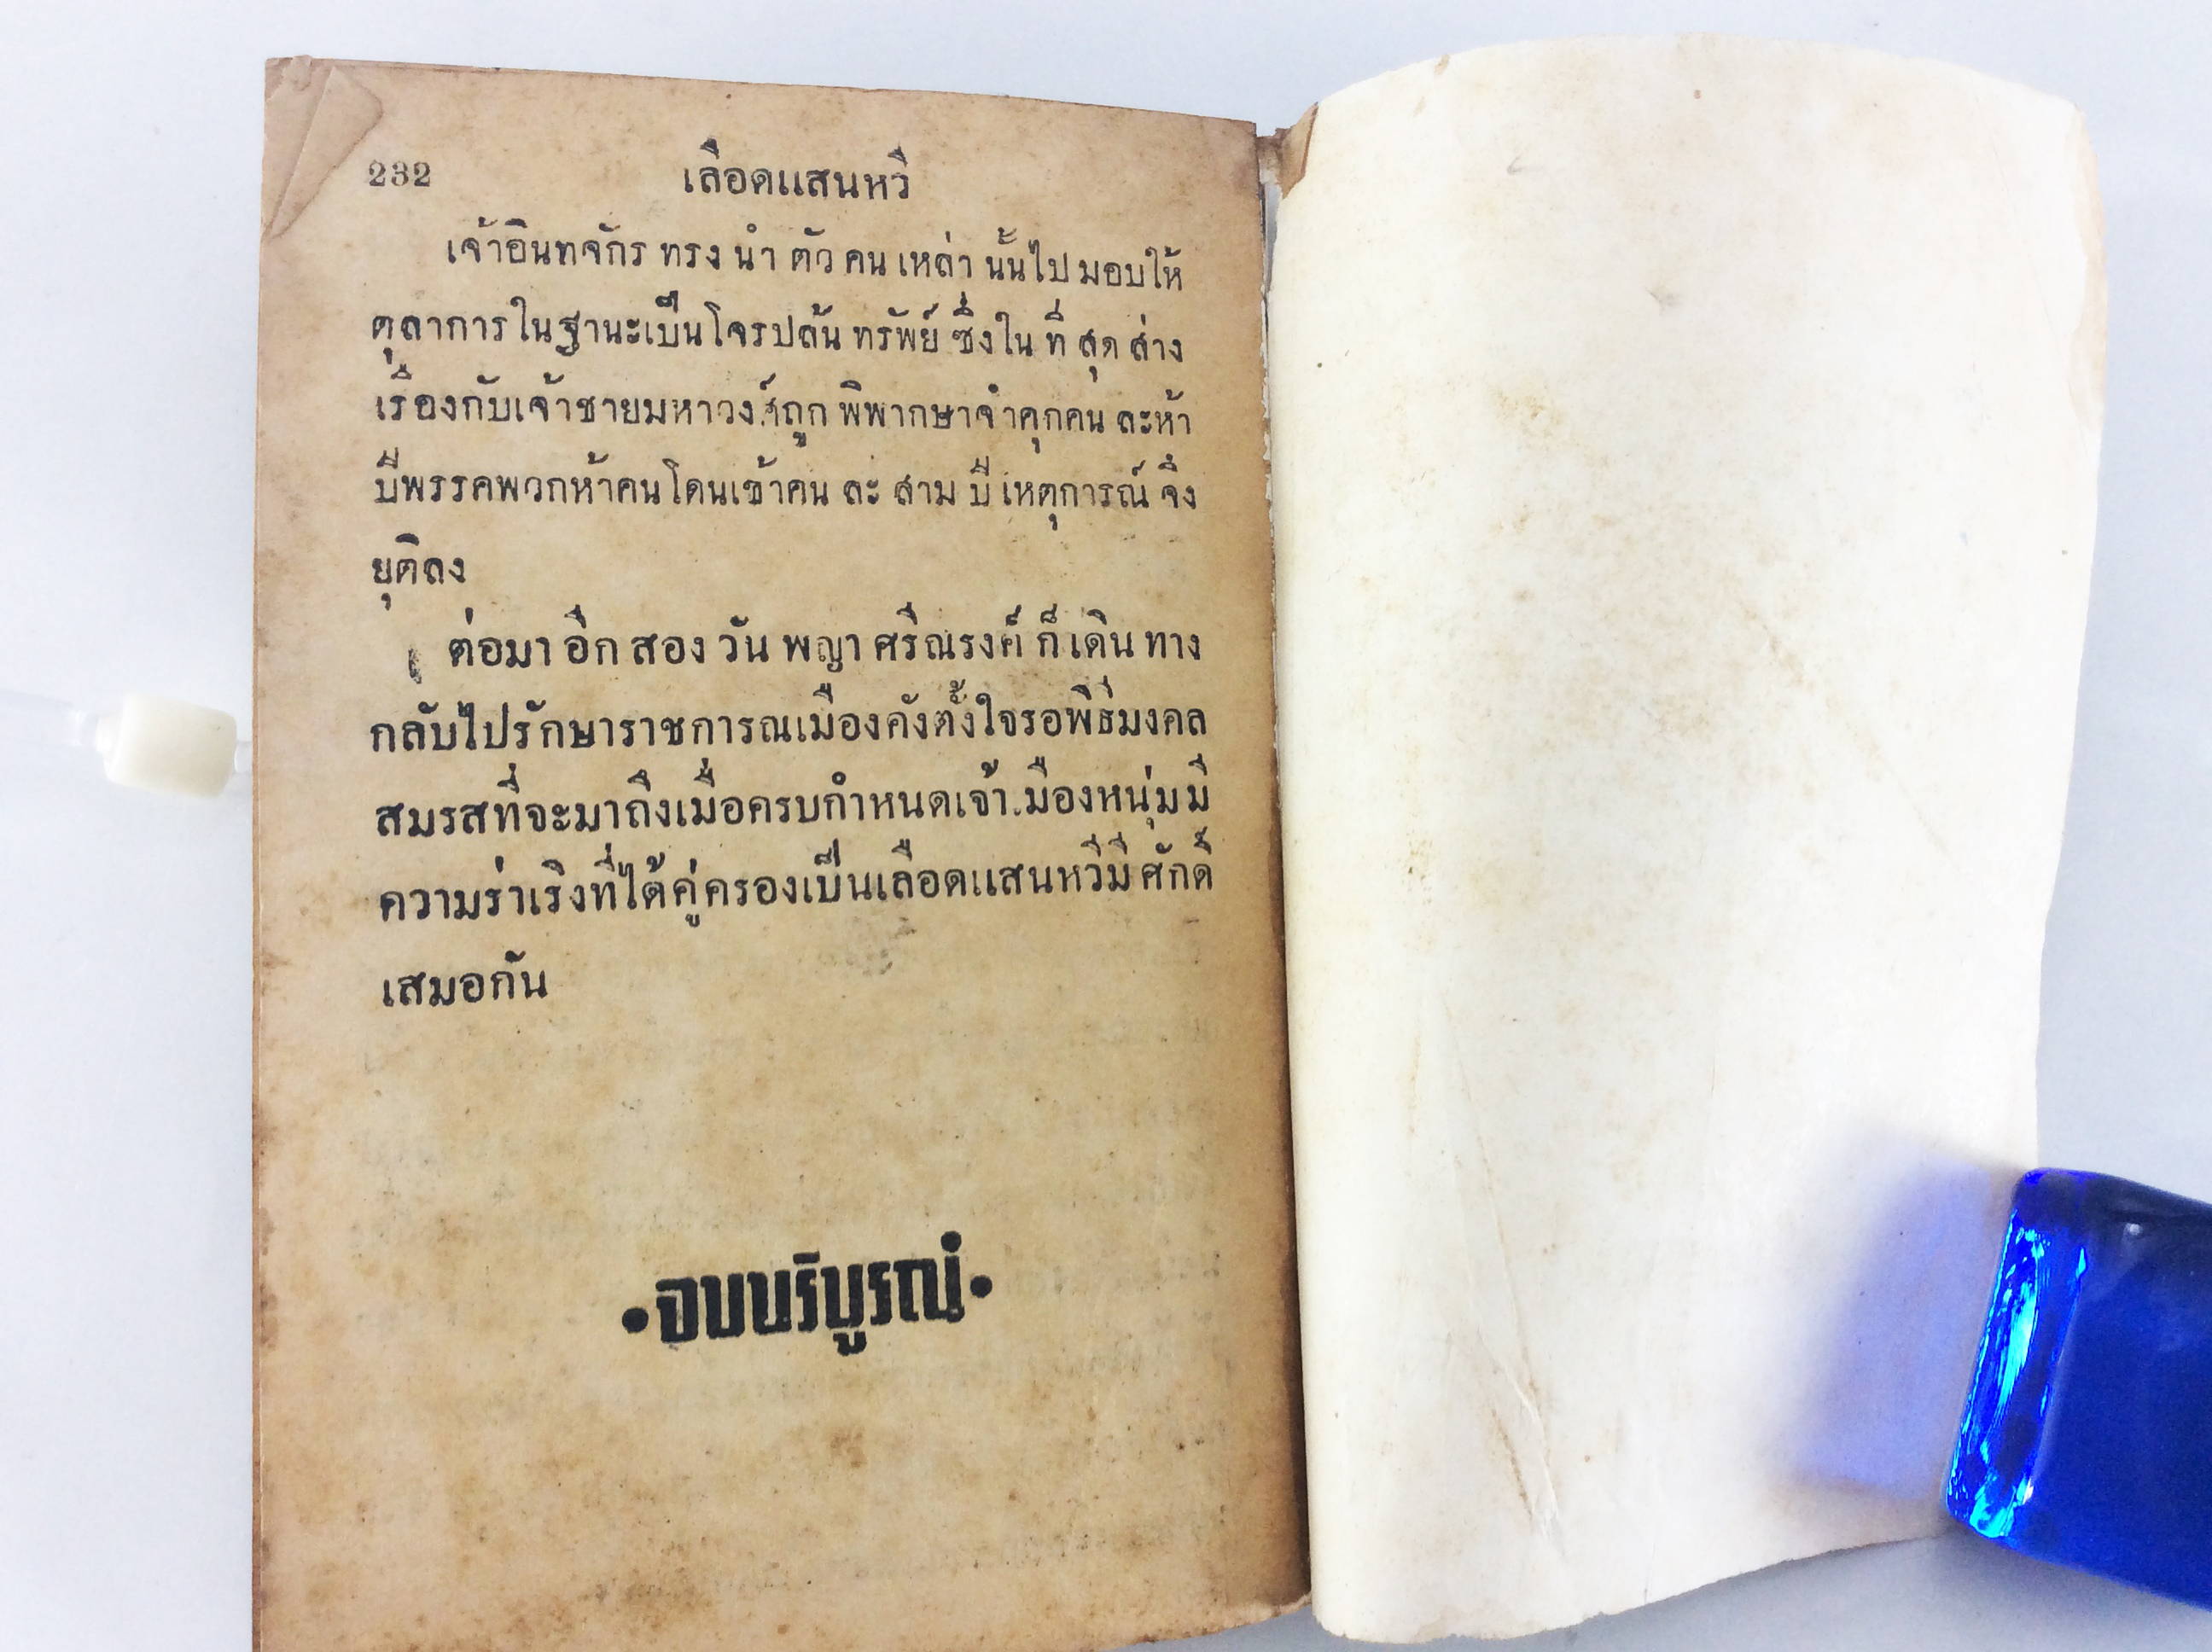 232
เลือดแสนหวี
เจ้าอินทจักร ทรง นำ ตัว คน เหล่า นั้นไป มอบให้
ตุลาการในฐานะเป็นโจรปล้น ทรัพย์ ซึ่งใน ที่ สุด ส่าง
เรืองกับเจ้าชายมหาวงส์ถูก พิพากษาจำคุกคน ละห้า
ปีพรรคพวกห้าคนโดนเข้าคน ละ สาม ปี เหตุการณ์ จึง
ยุติลง
ต่อมา อีก สอง วัน พญา ศรีณรงค์ ก็ เดิน ทาง
กลับไปรักษาราชการณเมืองคังตั้งใจรอพิธีมงคล
สมรสที่จะมาถึงเมื่อครบกำหนดเจ้า.มืองหนุ่มมี
ความร่าเริงที่ได้คู่ครองเป็นเลือดแสนหวีมี ศักดิ์
เสมอกัน
•จบบริบูรณ์•